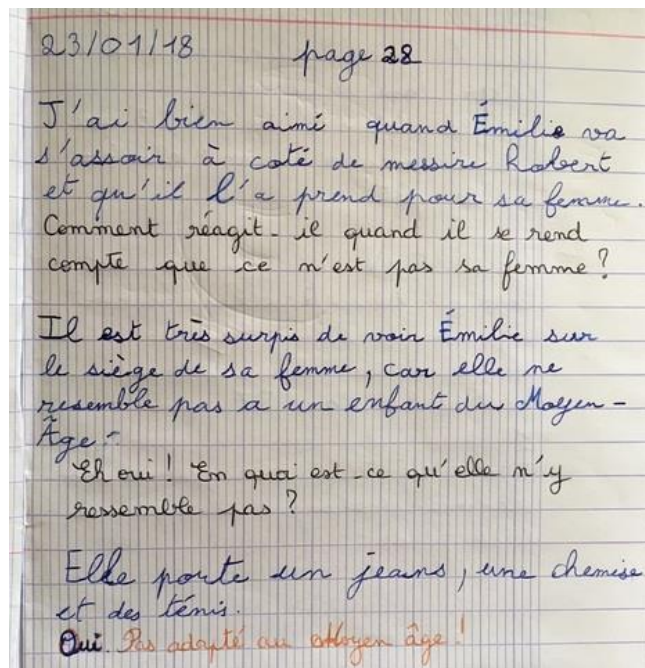 23/01/18 page 28
J'ai bien aimé quand Émilie va
s'assoir à coté de messire Robert
et qu'il l'a prend pour sa femme.
Comment réagit-il quand il se rend
compte que ce n'est pas sa femme?
Il est très surpis de voir Émilie sur
le siège de sa femme, car elle ne
resemble pas a un enfant du Moyen-
Âge.
Eh oui! En quoi est-ce qu'elle n'y
ressemble pas?
Elle porte un jeans, une chemise
et des ténis.
Oui. Pas adapté au Moyen âge!